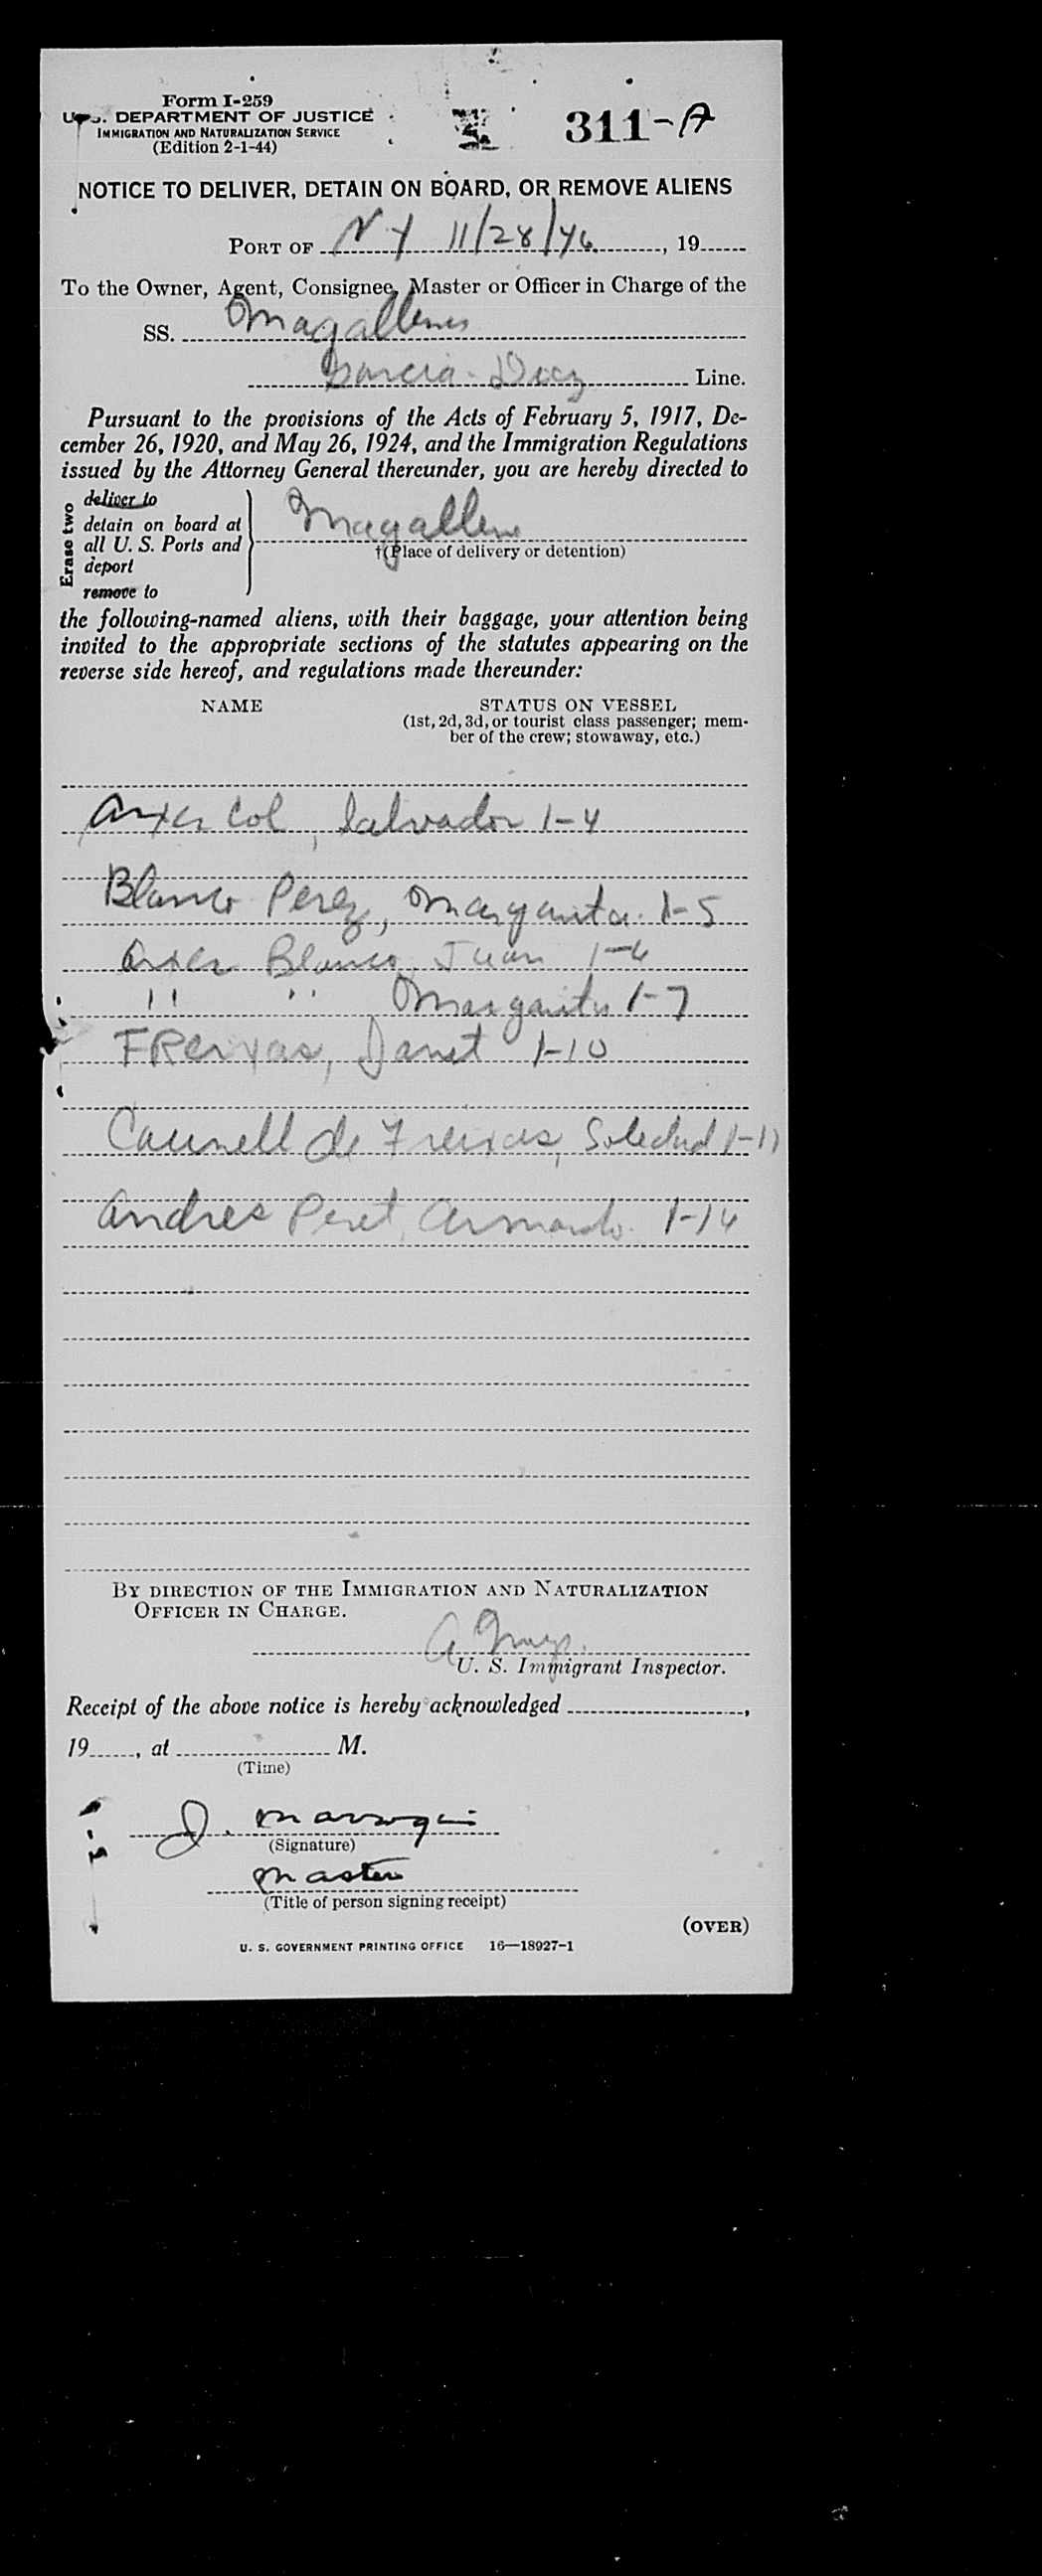 Form I-259
U. S. DEPARTMENT OF JUSTICE
IMMIGRATION AND NATURALIZATION SERVICE
(Edition 2-1-44)
311-A
NOTICE TO DELIVER, DETAIN ON BOARD, OR REMOVE ALIENS
PORT OF N Y 11/28/46, 19
To the Owner, Agent, Consignee, Master or Officer in Charge of the
SS. Magallanes
Garcia-Diaz Line.
Pursuant to the provisions of the Acts of February 5, 1917, De-
cember 26, 1920, and May 26, 1924, and the Immigration Regulations
issued by the Attorney General thereunder, you are hereby directed to
Erase two
deliver to
detain on board at
all U. S. Ports and
deport
remove to
Magallanes
†(Place of delivery or detention)
the following-named aliens, with their baggage, your attention being
invited to the appropriate sections of the statutes appearing on the
reverse side hereof, and regulations made thereunder:
NAME
STATUS ON VESSEL
(1st, 2d, 3d, or tourist class passenger; mem-
ber of the crew; stowaway, etc.)
Col, Salvador 1-4
Blanco Perez, Margarita 1-5
Blanco, Juan 1-6
" " Margarita 1-7
Janet 1-10
de Freixas, Soledad 1-11
Andres Peret, Armando 1-14
BY DIRECTION OF THE IMMIGRATION AND NATURALIZATION
OFFICER IN CHARGE.
U. S. Immigrant Inspector.
Receipt of the above notice is hereby acknowledged ,
19 , at M.
(Time)
J.
(Signature)
Master
(Title of person signing receipt)
(OVER)
U. S. GOVERNMENT PRINTING OFFICE 16—18927-1